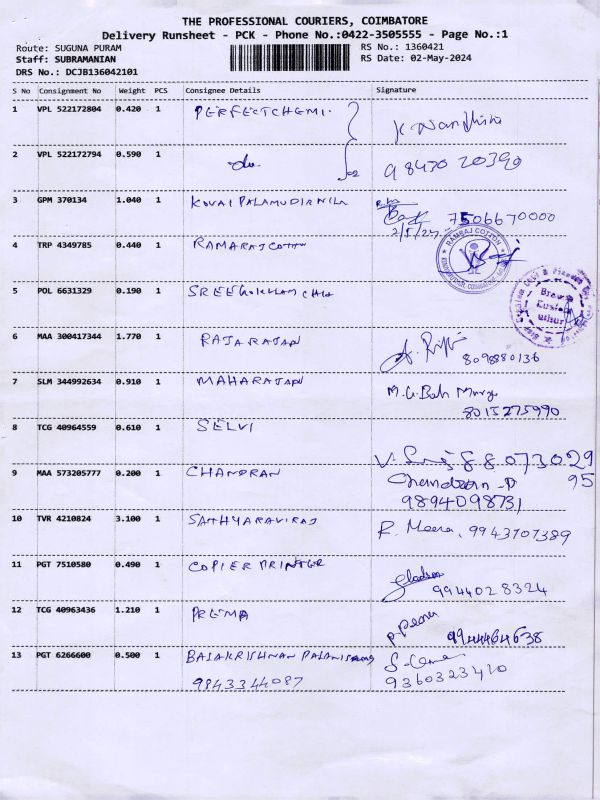 THE PROFESSIONAL COURIERS, COIMBATORE
Delivery Runsheet - PCK - Phone No.:0422-3505555 - Page No.:1
Route: SUGUNA PURAM
Staff: SUBRAMANIAN
DRS No.: DCJB136042101
RS No.: 1360421
RS Date: 02-May-2024
S No Consignment No Weight PCS Consignee Details Signature
1 VPL 522172804 0.420 1 PERFECTCHEMI. K Nandhini
2 VPL 522172794 0.590 1 do 02 98430 20390
3 GPM 370134 1.040 1 KOVAI PALAMUDIR NILA 7506670000
2/5/24
4 TRP 4349785 0.440 1 RAMARAJ COTTON
RAMRAJ COTTON
5 POL 6631329 0.190 1 SREE GOKULAM CHIT
6 MAA 300417344 1.770 1 RAJARAJAN 809880136
7 SLM 344992634 0.910 1 MAHARAJAN M.G.
8015275990
8 TCG 40964559 0.610 1 SELVI 88073029
95
9 MAA 573205777 0.200 1 CHANDRAN Chandran - P
9894098731
10 TVR 4210824 3.100 1 SATHYARAVIRAJ R. Meena, 9943707389
11 PGT 7510580 0.490 1 COPIER PRINTER
9944028324
12 TCG 40963436 1.210 1 PREMA 9944464638
13 PGT 6266600 0.500 1 BALAKRISHNAN PALANISAMY
9843344087 9360323410